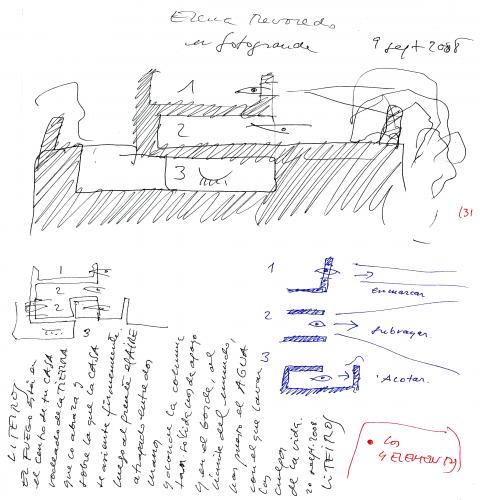 Elena Revoredo
en fotogrande
9 sept 2008
1
2
3
(3)
1
2
2
3
1
enmarcar
2
subrayar
3
Acotar.
LITEIROS
EL FUEGO está en
el centro de tu CASA
rodeado de la TIERRA
que lo abraza y
sobre la que la CASA
se asienta firmemente.
Luego al frente el AIRE
atrapado entre dos
manos
con la columna
de apoyo
y en el borde, al
límite del mundo,
el AGUA
con el que lavan
los
de la vida.
20 sept. 2008
LITEIROS
• Los
4 ELEMENTOS